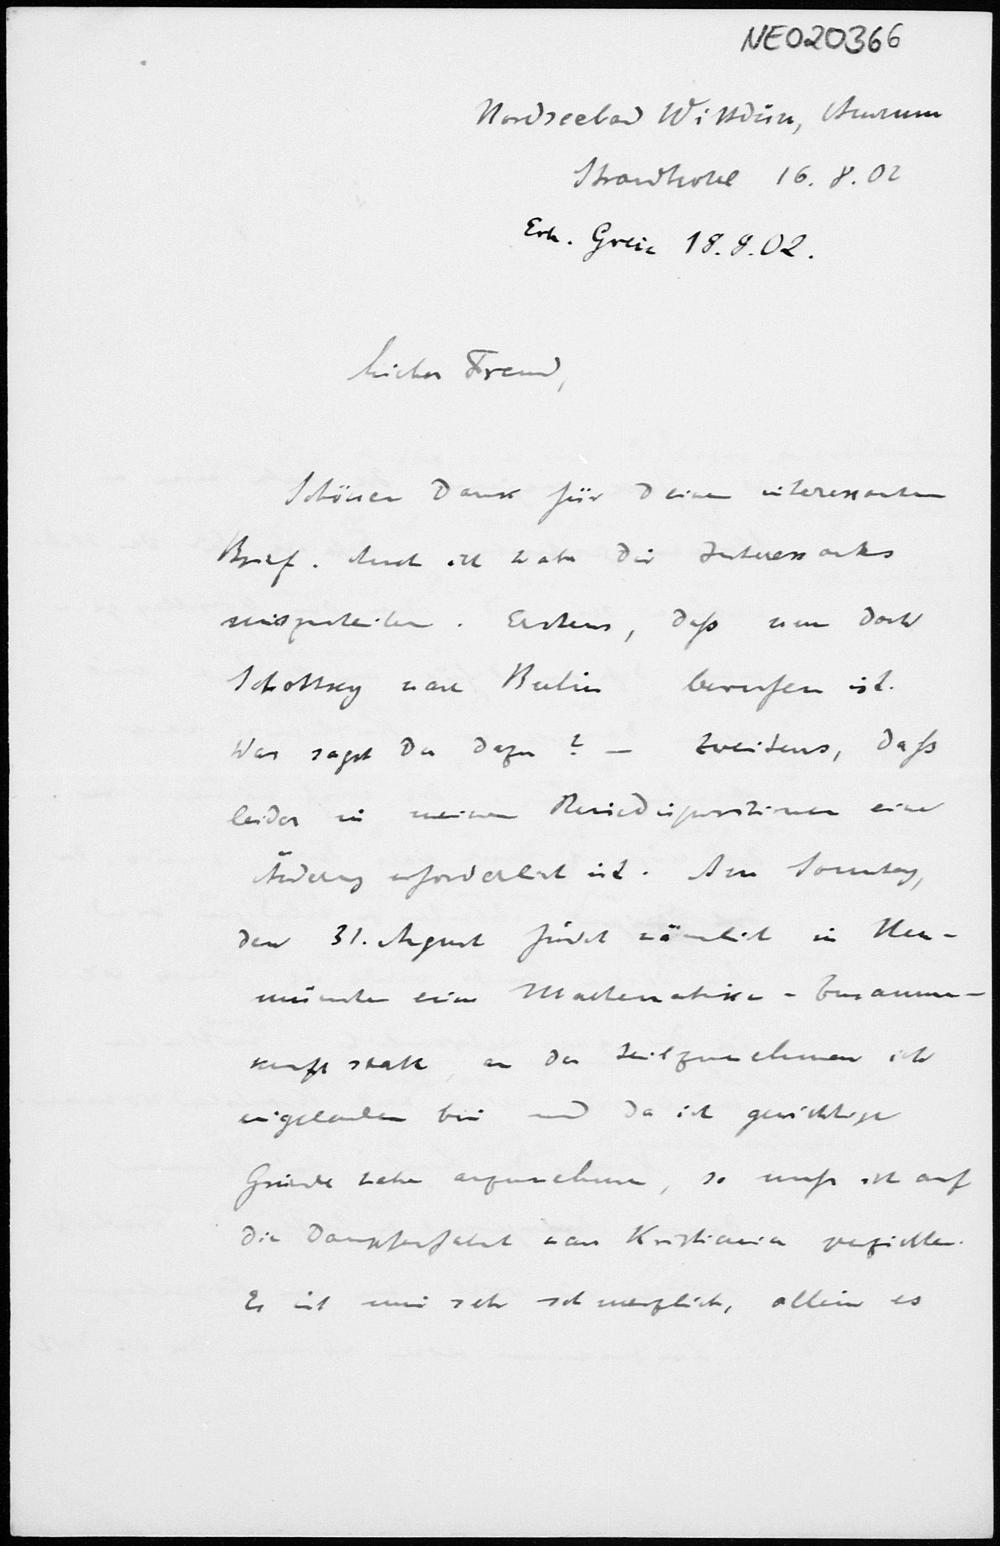 NE020366
Nordseebad Wittdün, Amrum
Strandhotel 16. 8. 02
Erh. Greiz 18.8.02.
Lieber Freund,
Schönen Dank für Deinen interessanten
Brief. Auch ich habe Dir Interessantes
mitzuteilen. Erstens, daß nun doch
Schottky nach Berlin berufen ist.
Was sagst Du dazu? — Zweitens, daß
leider in meinen Reisedispositionen eine
Änderung erforderlich ist. Am Sonntag,
den 31. August findet nämlich in Neu-
münster eine Mathematiker-Zusammen-
kunft statt, an der teilzunehmen ich
eingeladen bin und da ich gewichtige
Gründe habe anzunehmen, so muß ich auf
die Dampferfahrt nach Kristiania verzichten.
Es ist mir sehr schmerzlich, allein es